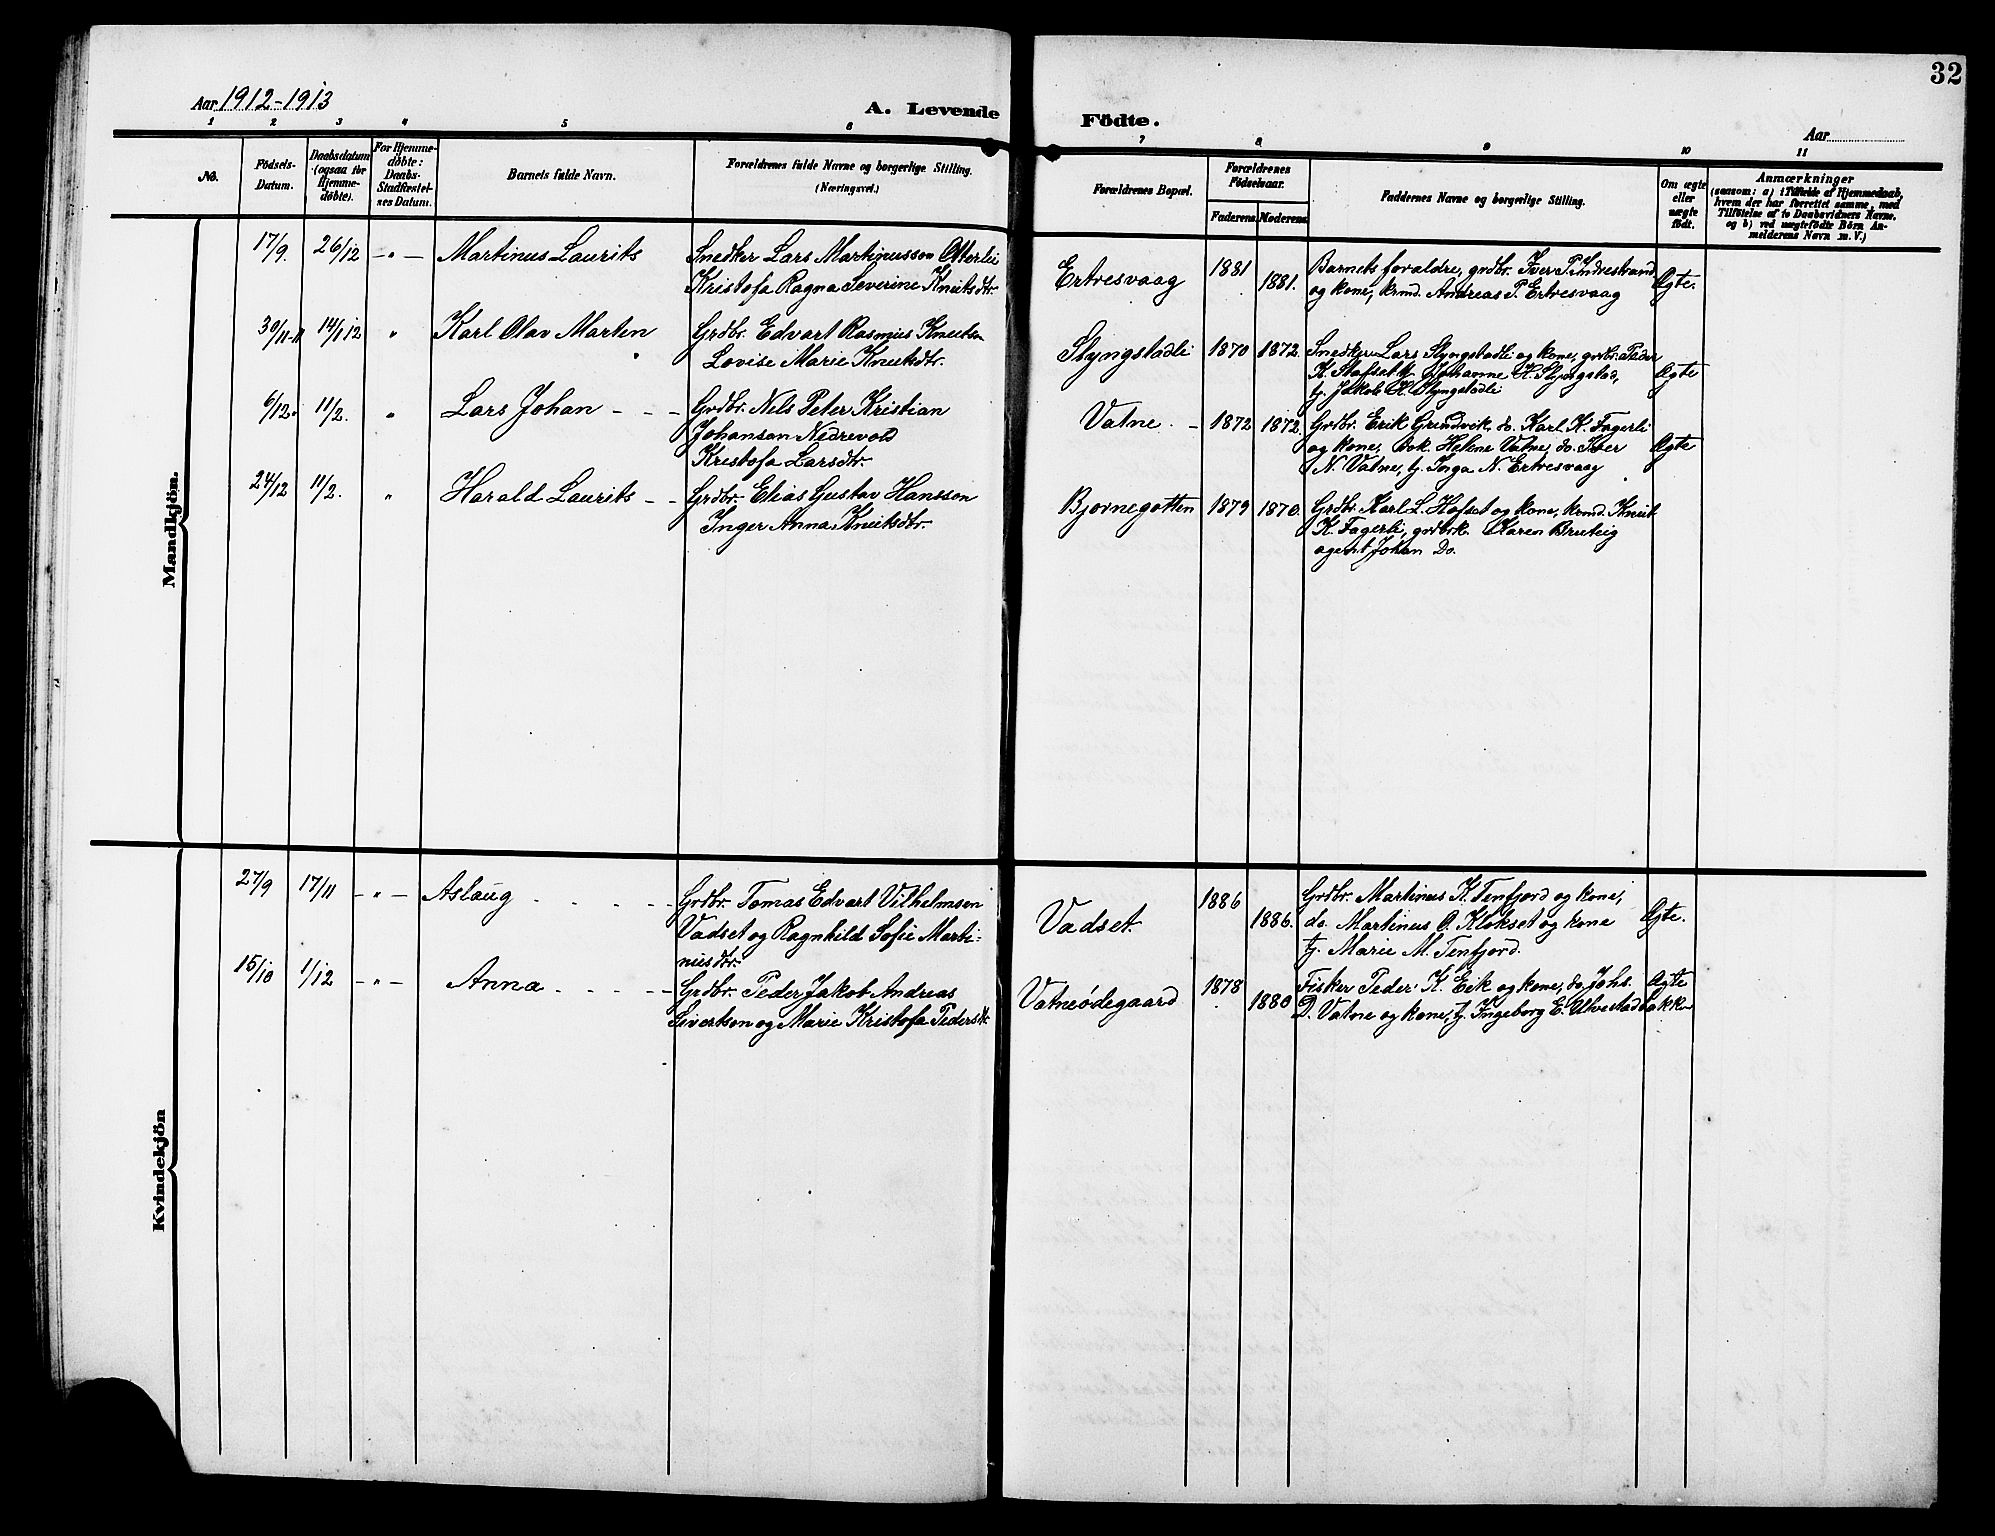 32
Aar 1912-1913
A. Levende
Födte.
Aar
1 2 3 4 5 6
7 8 9 10 11
No.
Födsels-
Datum.
Daabsdatum
(ogsaa for
Hjemme-
döbte).
For Hjemme-
döbte:
Daabs-
Stadfæstel-
ses Datum.
Barnets fulde Navn.
Forældrenes fulde Navne og borgerlige Stilling.
(Næringsvei.)
Forældrenes Bopæl.
Forældrenes
Födselsaar.
Faderens. Moderens.
Faddernes Navne og borgerlige Stilling.
Om ægte
eller
uægte
födt.
Anmærkninger
(saasom: a) i Tilfælde af Hjemmedaab,
hvem der har forrettet samme, med
Tilföielse af to Daabsvidners Navne,
og b) ved uægtefödte Börn An-
melderens Navn m. V.)
Mandkjön.
17/9. 26/12 - " - Martinus Laurits
Snedker Lars Martinusson Otterlei
Kristofa Ragna Severine Knutsdtr.
Ertresvaag 1881 1881.
Barnets foraldre, grdbr. Iver P. Indrestrand
og kone, krmd. Andreas P. Ertresvaag
Ægte.
30/11 14/1 12 " Karl Olav Marten
Grdbr. Edvart Rasmus Knutsen
Lovise Marie Knutsdtr.
Slyngstadli 1870 1872.
Snedker Lars Slyngstadli og kone, grdbr. Peder
K. Slyngstad,
tj. Jakob K. Slyngstadli
Ægte
6/12. 11/2. " Lars Johan - - -
Grdbr. Nels Peter Kristian
Johanson Nedrevold
Kristofa Larsdtr.
Vatne. - 1872 1872.
Grdbr. Erik Grindvik, do. Karl K. Fagerli
og kone, Helene Vatne, do. Iver
N. Vatne, tj. Inga N. Ertresvaag
Ægte
24/12 11/2. " Harald Laurits - -
Grdbr. Elias Gustav Hansson
Inger Anna Knutsdtr.
Bjornegotten 1879 1870.
Grdbr. Karl L. Hofset og kone, krmd. Knut
K. Fagerli, grdbrk. Karen Bruteig
agent Johan Do.
Kvindekjön
27/9 17/11 - " - Aslaug - - - - -
Grdbr. Tomas Edvart Vilhelmsen
Vadset og Ragnhild Sofie Marti-
nusdtr.
Vadset. 1886 1886.
Grdbr. Martinus K. Tenfjord og kone,
do. Martinus O. Klokset og kone
tj. Marie M. Tenfjord.
Ægte.
15/10 1/12 - " - Anna - - - - -
Grdbr. Peder Jakob Andreas
Sivertson og Marie Kristofa Pedersdtr.
Vatneödegaard 1878 1880
Fisker Peder K. Eik og kone, do. Johs.
D. Vatne og kone, tj. Ingeborg E. Ulvestadbakken
Ægte